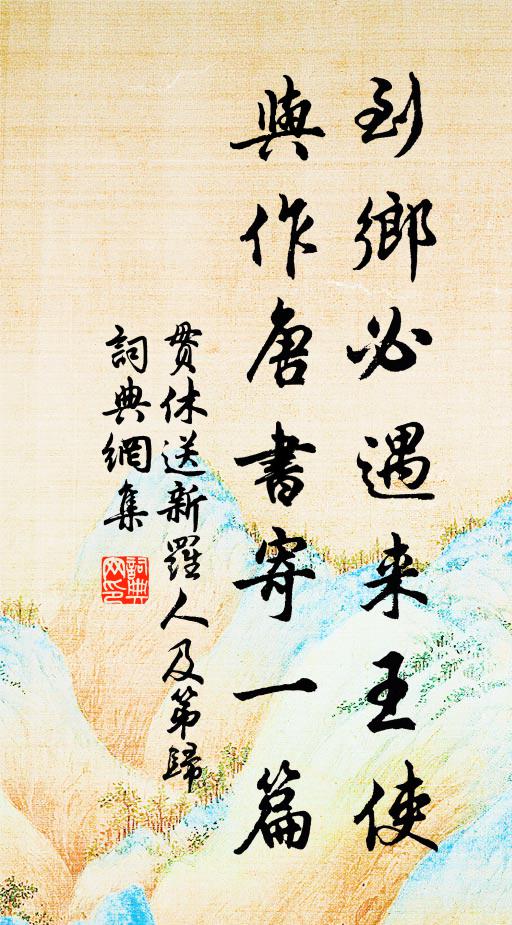 到鄉必遇来王使
與作唐書寄一篇
貫休送新羅人及第歸
詞典網集
詞典網印